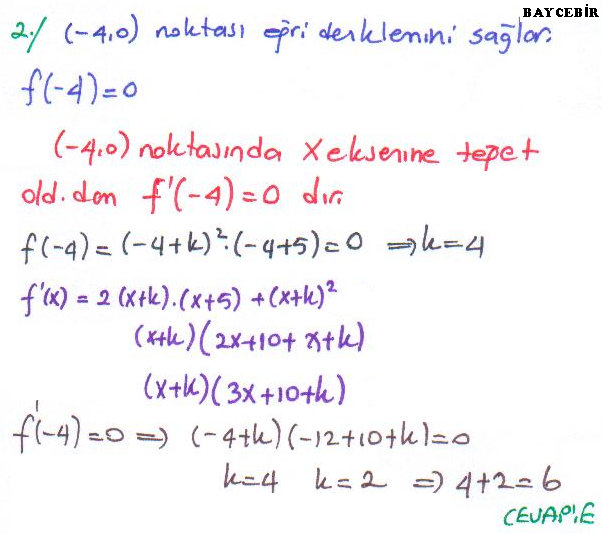 BAYCEBİR
2./ (-4,0) noktası eğri denklemini sağlar.
f(-4)=0
(-4,0) noktasında X eksenine teğet
old.dan f'(-4)=0 dır.
f(-4)=(-4+k)².(-4+5)=0 ⇒k=4
f'(x) = 2(x+k).(x+5)+(x+k)²
(x+k)(2x+10+x+k)
(x+k)(3x+10+k)
f'(-4)=0 ⇒ (-4+k)(-12+10+k)=0
k=4 k=2 ⇒ 4+2=6
CEVAP:E